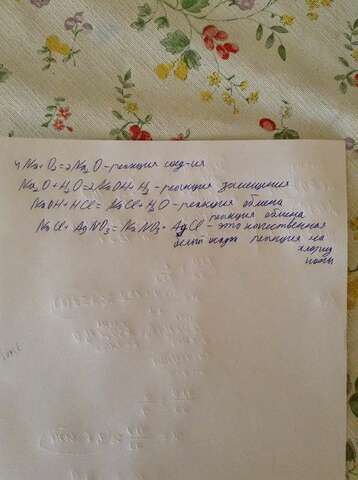 4Na+O₂=2Na₂O-реакция соед-ия
Na₂O+H₂O=2NaOH+H₂-реакция замещения
NaOH+HCl=NaCl+H₂O-реакция обмена
реакция обмена
NaCl+AgNO₃=NaNO₃+AgCl-это качественная
белый осадок реакция на
хлорид
ионы